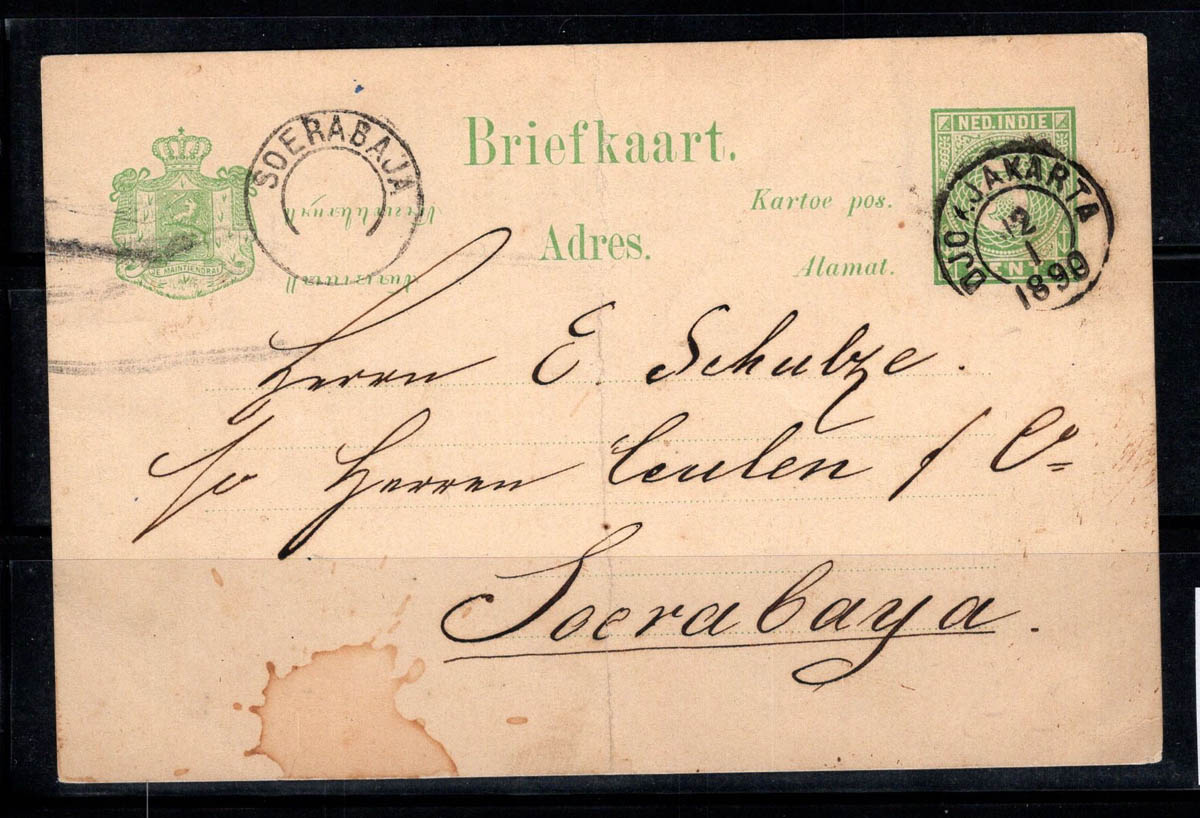 NED. INDIE
SOERABAJA
Briefkaart.
DJOKJAKARTA
2
1
1890
Kartoe pos.
Adres.
Alamat.
CENT
JE MAINTIENDRAI
Herrn E. Schulze.
p/o Herren Ceulen / Co
Soerabaya.